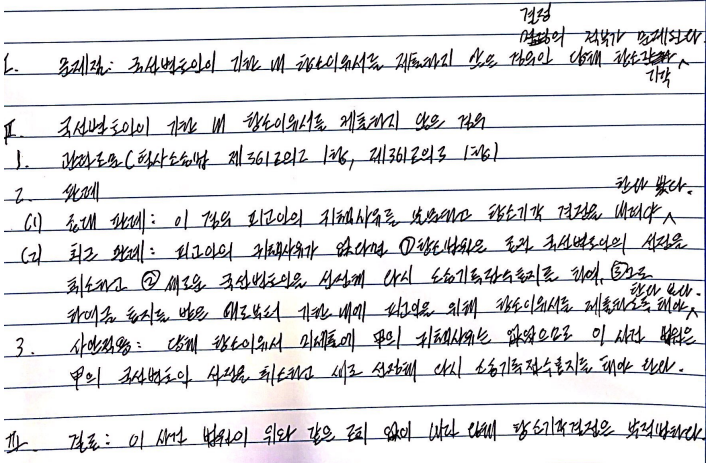 결정
의 적부가 문제된다.
I. 문제점: 국선변호인이 기간 내 항소이유서를 제출하지 않은 경우인 당해 항소
기각
II. 국선변호인이 기간 내 항소이유서를 제출하지 않은 경우
1. 관련조문(형사소송법 제361조의2 1항, 제361조의3 1항)
2. 판례
한다 봤다.
(1) 종래 판례: 이 경우 피고인의 귀책사유를 불문하고 항소기각 결정을 내려야
(2) 최근 판례: 피고인의 귀책사유가 없다면 ① 항소법원은 종전 국선변호인의 선정을
취소하고 ② 새로운 국선변호인을 선정해 다시 소송기록접수통지를 하여, ③ 그로
한다 본다.
하여금 통지를 받은 때로부터 기간 내에 피고인을 위해 항소이유서를 제출하도록 해야
3. 사안적용: 당해 항소이유서 미제출에 甲의 귀책사유는 없었으므로 이 사건 법원은
甲의 국선변호인 선정을 취소하고 새로 선정해 다시 소송기록접수통지를 해야 한다.
III. 결론: 이 사건 법원이 위와 같은 조치 없이 내린 당해 항소기각결정은 부적법하다.